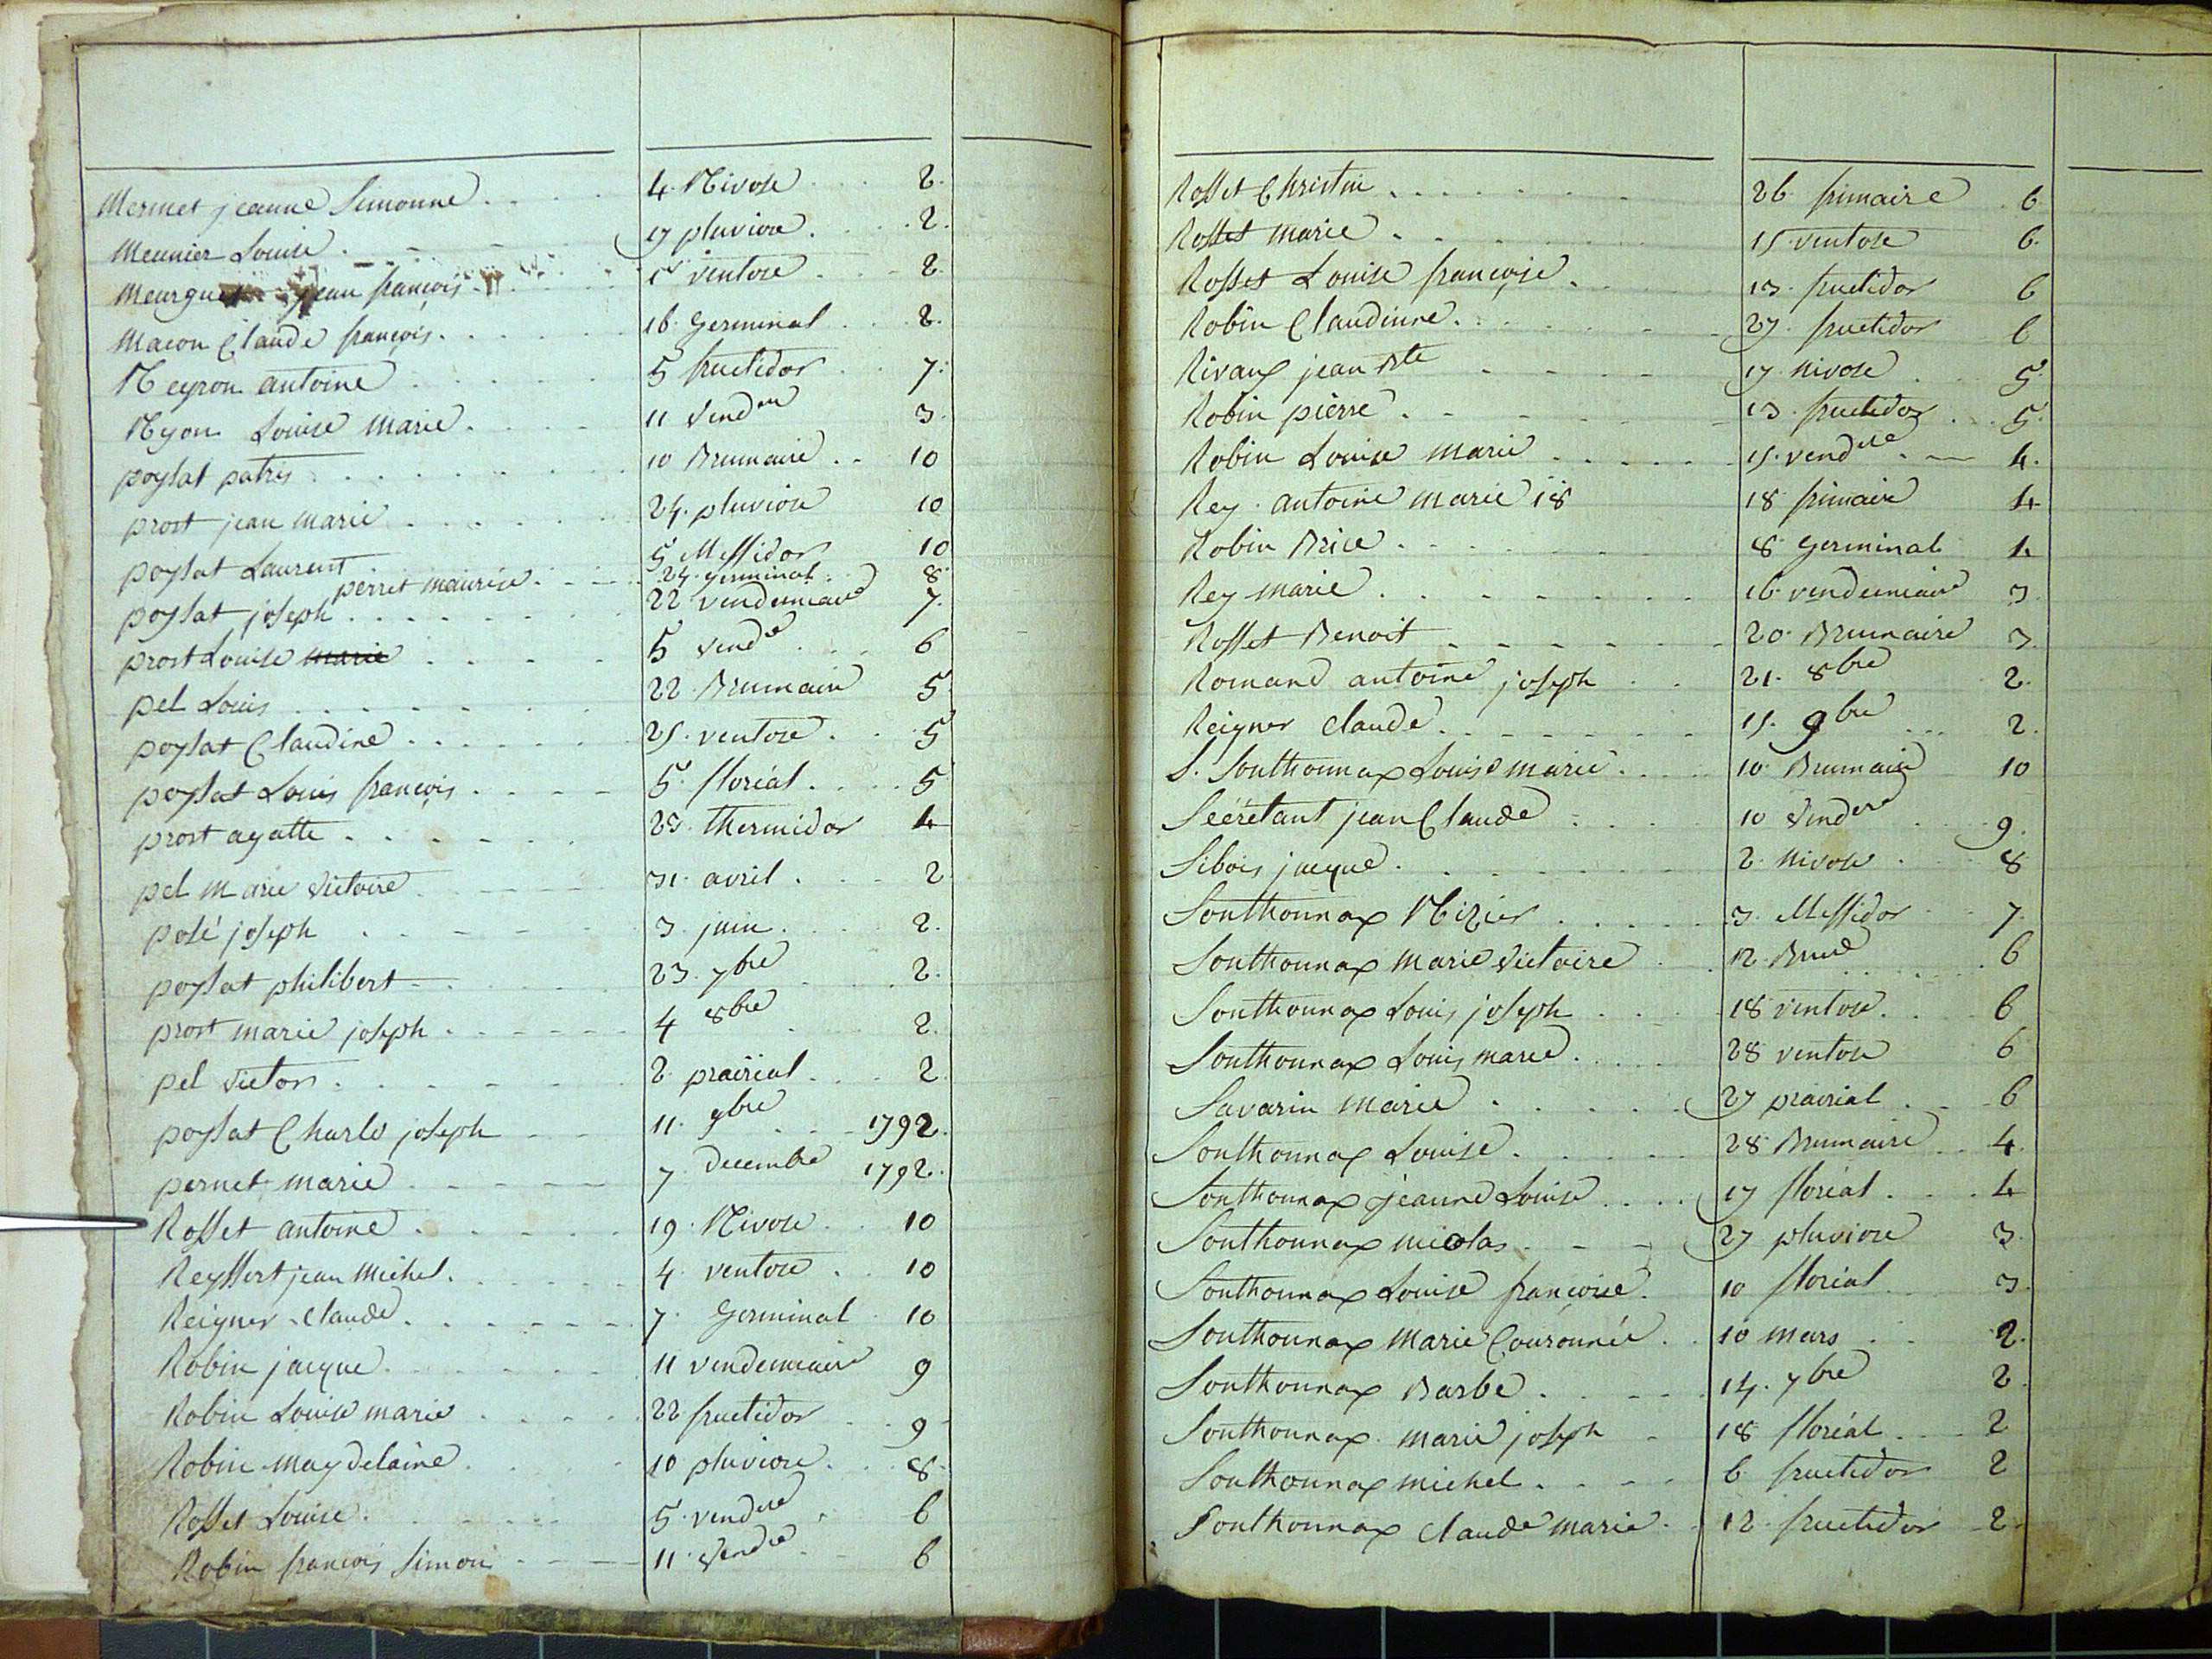 Mermet jeanne Simonne 4. Nivose 2.
Meunier Louise 17 pluviose 2.
jean françois 1er ventose 2.
Macon Claude françois 16. Germinal 2.
Neyron antoine 5 fructidor 7.
Nyon Louise Marie 11 Vend 3.
poysat 10 Brumaire 10
prost jean marie 24. pluviose 10
poysat Laurent 5 Messidor 10
perret maurise 24. germinal 8
poysat joseph 22 vendemiaire 7.
prost Louise marie 5 vendre 6
pel Louis 22. Brumaire 5.
poysat Claudine 25. ventose 5
poysat Louis françois 5. floréal 5
prost agatte 23. thermidor 4
pel Marie Victoire 31. avril 2
polé joseph 3. juin 2.
poysat philibert 23. 7bre 2.
prost marie joseph 4 8bre 2.
pel Victor 2 prairial 2
poysat Charle joseph 11. 9bre 1792.
pernet marie 7 decembre 1792.
Rosset antoine 19. Nivose 10
Reyssert jean Michel. 4. ventose 10
Reigner Claude 7. Germinal 10
Robin jacque 11 vendemiaire 9
Robin Louise marie 22 fructidor 9
Robin Magdelaine 10 pluviose 8
Rosset Louise 5. vendre 6
Robin françois Simon 11. Vendre 6
Rosset Christin 26. frimaire 6
Rosset marie 15 ventose 6.
Rosset Louise françoise 13. fructidor 6
Robin Claudinne 27. fructidor 6
Rivaux jean Bte 17. Nivose 5.
Robin pierre 13. fructidor 5.
Robin Louise marie 15. vendre 4.
Rey antoine marie 18 18 frimaire 4
Robin Brice 8 Germinal 4
Rey marie 16 vendemiaire 3
Rosset Benoit 20. Brumaire 3.
Romand antoine joseph 21. 8bre 2.
Reigner Claude 15. 9bre 2.
S. Sonthonnax Louise marie 10. Brumaire 10
Sécrétant jean Claude 10 Vendre 9.
Sibois jacque 2. Nivose 8
Sonthonnax Nizier 3. Messidor 7.
Sonthonnax marie Victoire 12. Brure 6
Sonthonnax Louis joseph 18 ventose 6
Sonthonnax Louis marie 28 ventose 6
Savarin marie 27 prairial 6
Sonthonnax Louise 28 Brumaire 4.
Sonthonnax jeanne Louise 17 floréal 4
Sonthonnax nicolas 27 pluviose 3.
Sonthonnax Louise françoise 10 floréal 3.
Sonthonnax Marie Couronnée 10 mars 2.
Sonthonnax Barbe 14. 7bre 2.
Sonthonnax marie joseph 18 floréal 2
Sonthonnax michel 6 fructidor 2
Sonthonnax Claude marie 12 fructidor 2.